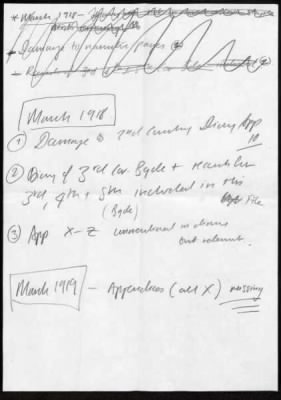 * March 1918 -
- Damage to narrative pages
March 1918
① Damage to 2nd Cavalry Diary App
② Diary of 3rd Cav Bgde +
3rd, 4th + 5th included in this
(Bgde) File
③ App X-Z unmentioned in diary
but relevant.
March 1919 - Appendices (all X) missing